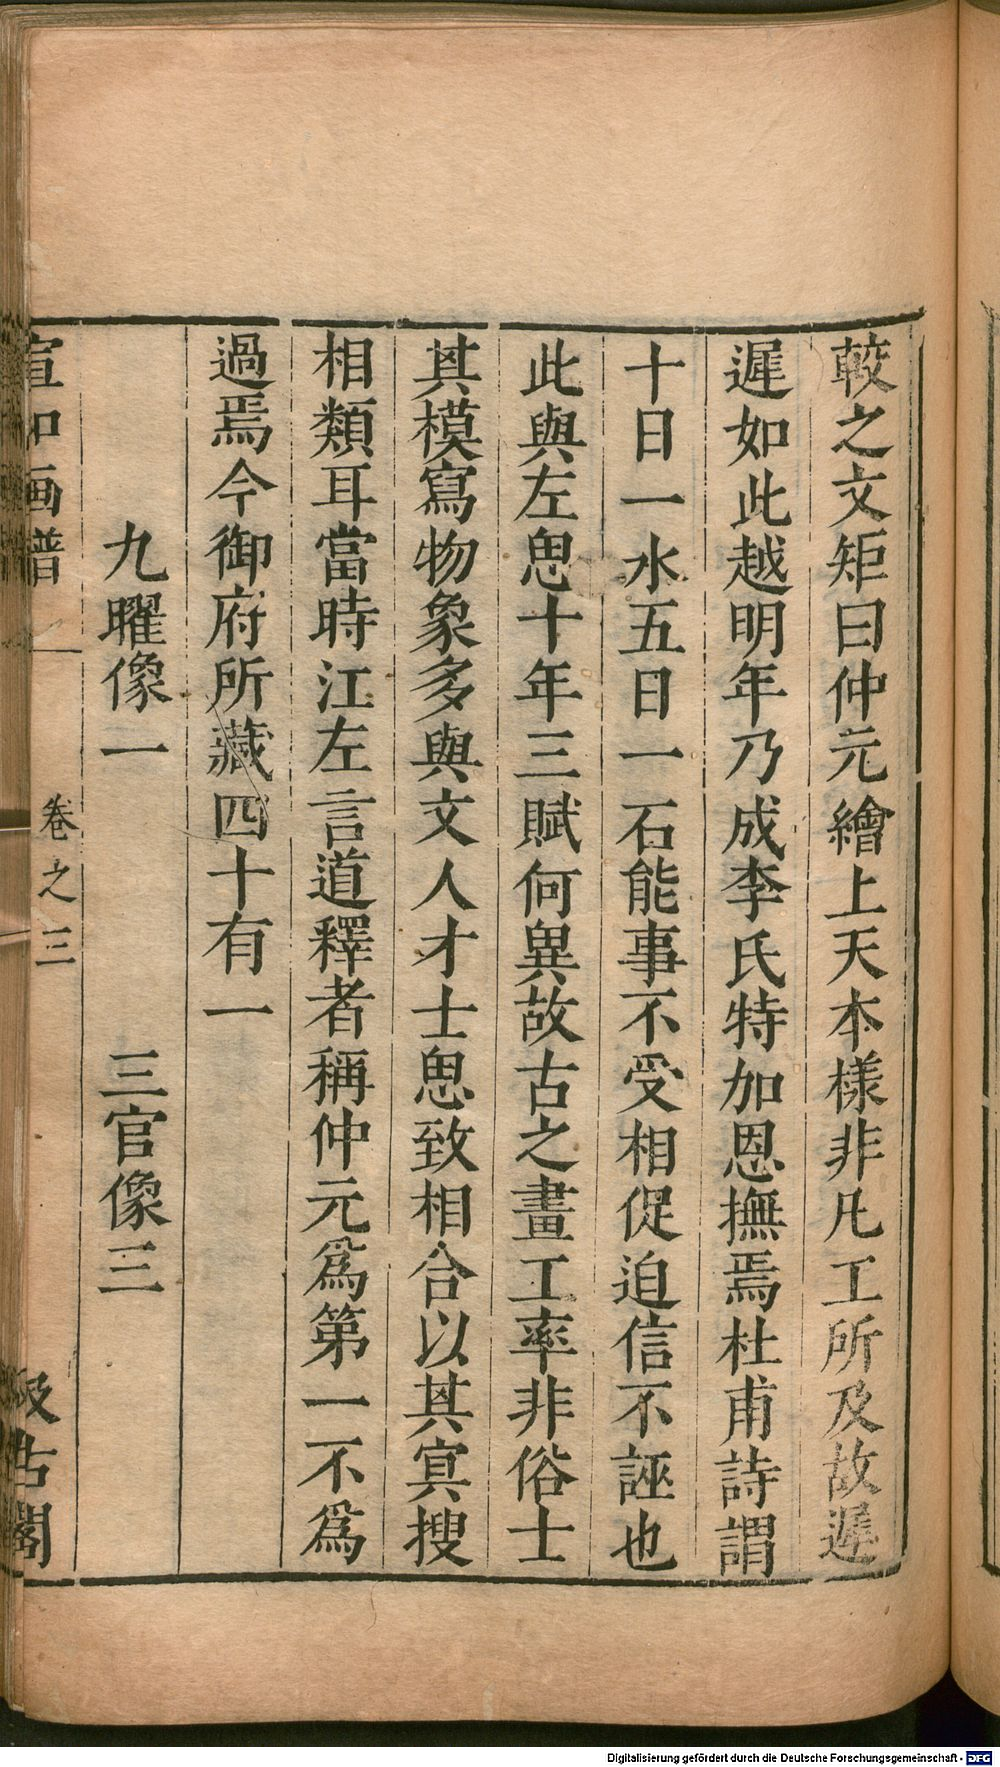 較之文矩曰仲元繪上天本樣非凡工所及故遲
遲如此越明年乃成李氏特加恩撫焉杜甫詩謂
十日一水五日一石能事不受相促迫信不誣也
此與左思十年三賦何異故古之畫工率非俗士
其模寫物象多與文人才士思致相合以其冥搜
相類耳當時江左言道釋者稱仲元爲第一不爲
過焉今御府所藏四十有一
九曜像一 三官像三
宣和画譜 卷之三 汲古閣
Digitalisierung gefördert durch die Deutsche Forschungsgemeinschaft - DFG